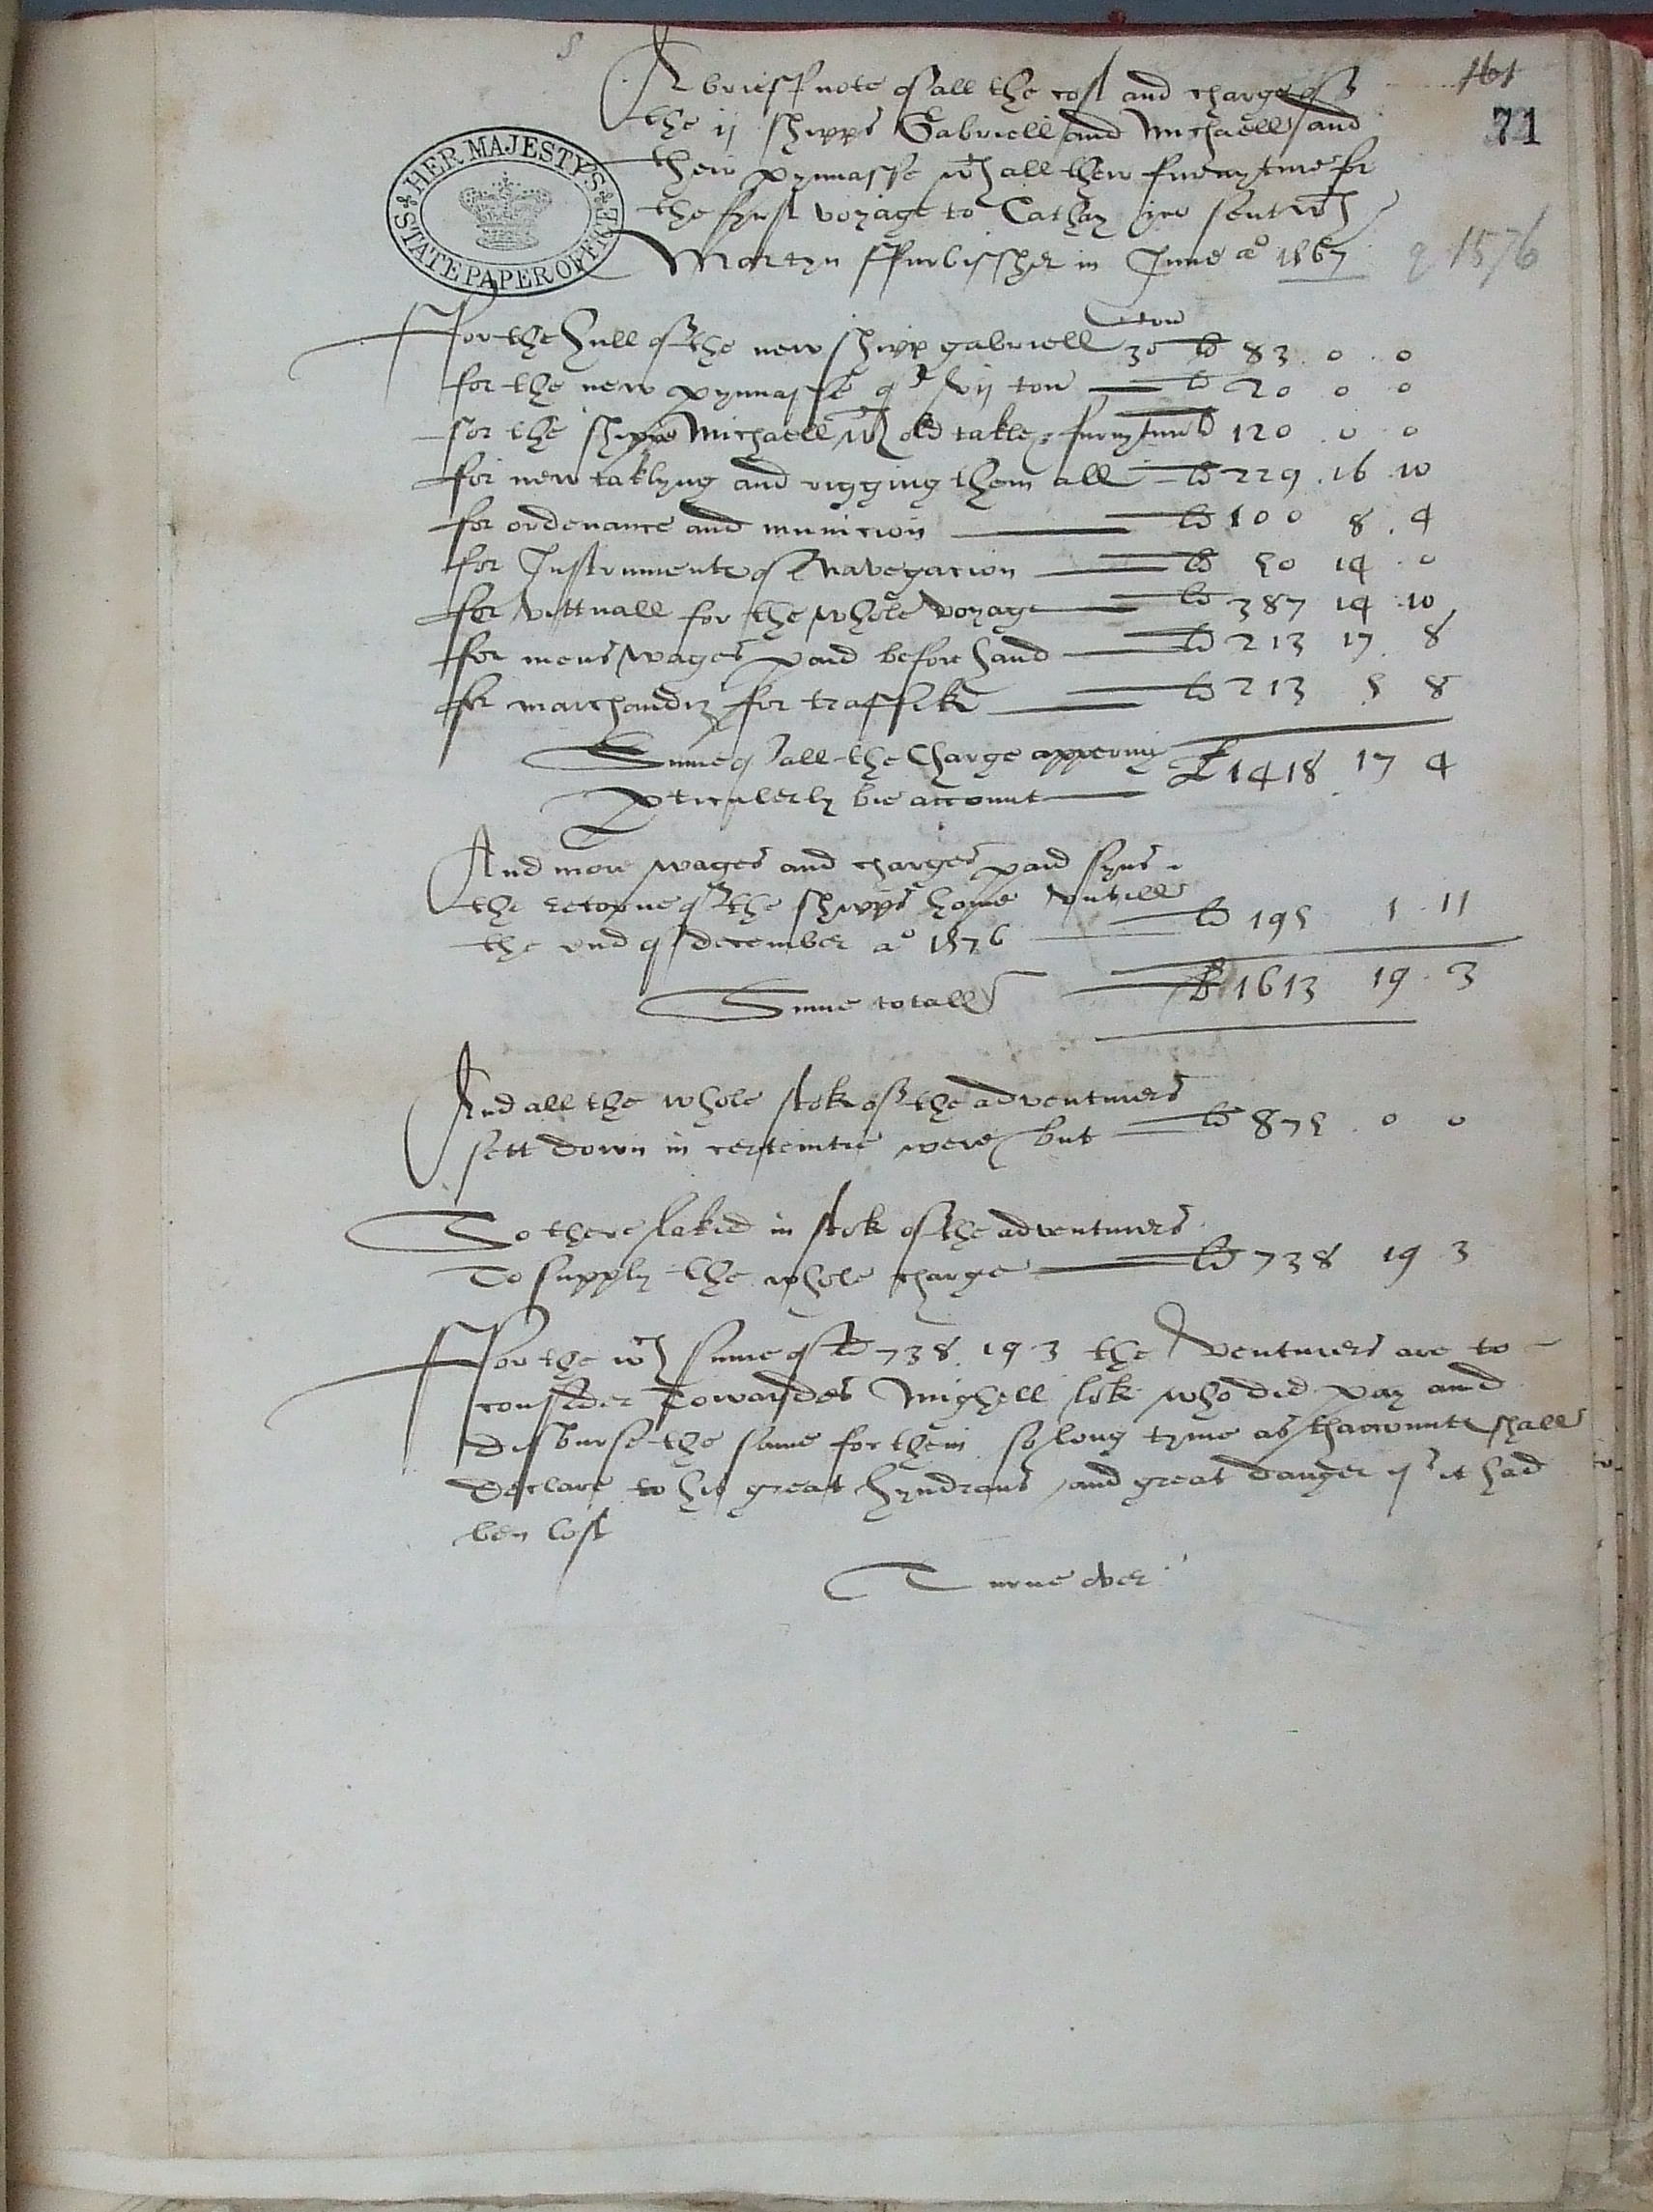 A brieff note of all the cost and charge of
161
71
the ij shipps Gabriell and Michaell and
their pynnasse wth all their furnyture for
the fyrst voyage to Cathay &c sent wth
Martyn ffurbissher in June ao 1567
q 1576
HER MAJESTY'S
STATE PAPER OFFICE
ffor the Hull of the new shipp gabriell 30 ton li 83 . 0 . 0
for the new pynnasse of vij ton li 20 0 0
for the shippe Michaell wth old takle & furnyture li 120 . 0 . 0
for new taklyng and rigging them all li 229 . 16 . 10
for ordenance and municion li 100 8 . 4
for Instrumente of Navegacion li 50 14 . 0
for vittuall for the whole voyage li 387 14 . 10
for mens wages paid before hand li 213 17 . 8
for marchandiz for traffik li 213 5 8
Sume of all the Charge appering
pticulerly bie account £ 1418 . 17 4
And more wages and charges paid syns
the retorne of the shipps home untill
the end of december ao 1576 li 195 1 . 11
Sume totall £ 1613 19 . 3
And all the whole stok of the adventurers
sett down in certeintie were but li 875 . 0 0
So there laked in stok of the adventurers
To supply the whole charge li 738 19 3
ffor the wch sume of li 738 . 19 3 the Venturers are to
consider Towardes Mighell lok who did pay and
disburse the same for them so long tyme as thaccounte shall
declare to his great hyndrans / and great danger yf it had
ben lost
Turne over